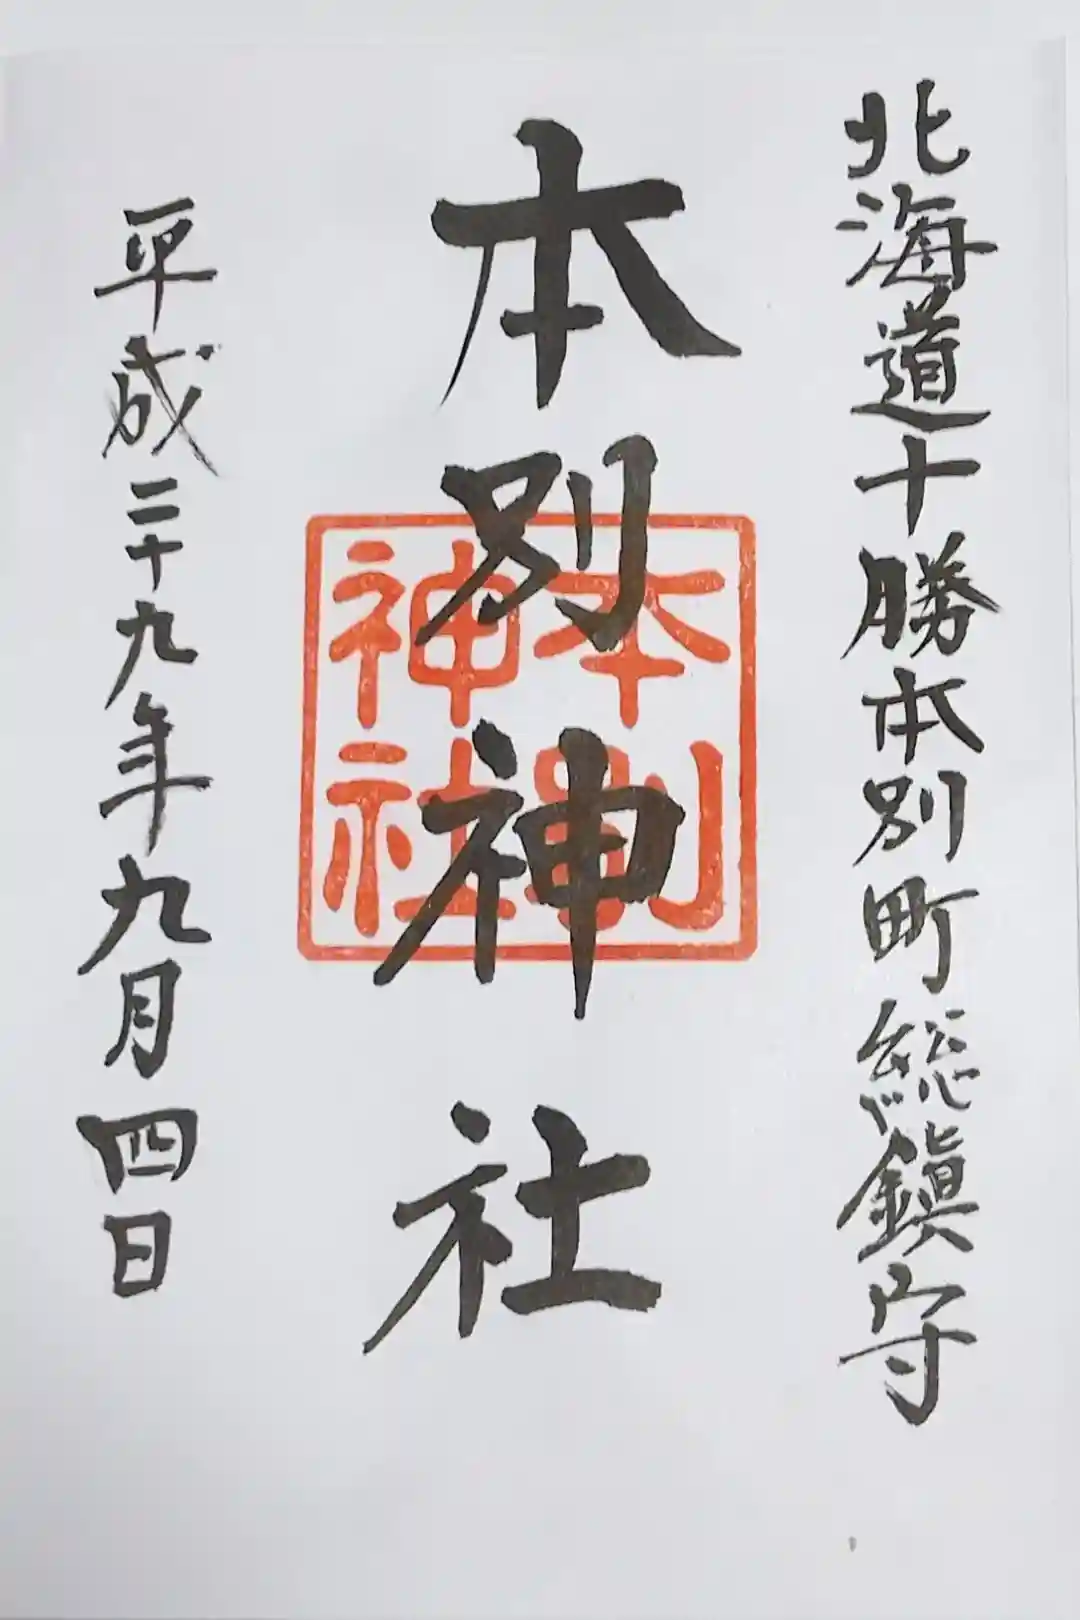 北海道十勝本別町総鎮守
本別神社
本別
神社
平成二十九年九月四日